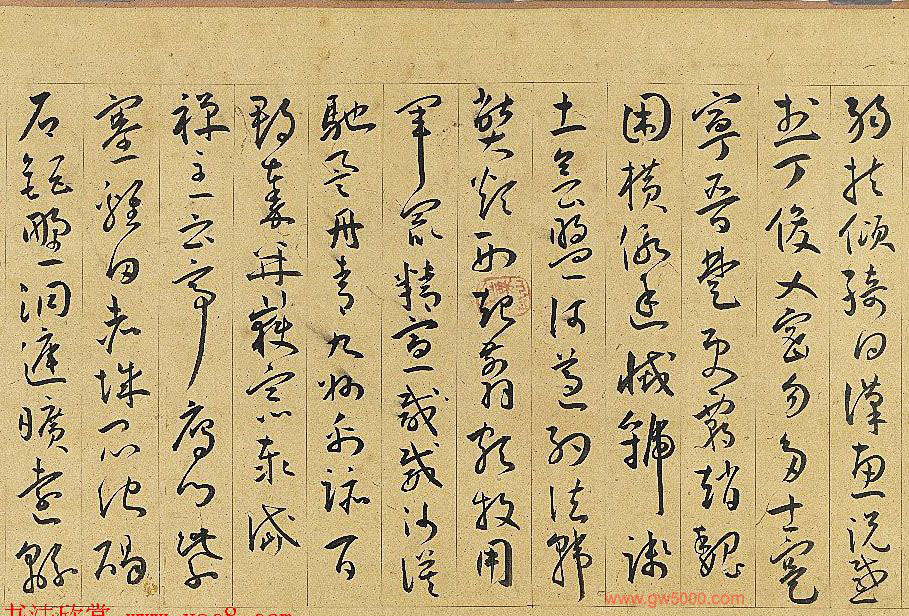 弱扶傾綺回漢惠説感
武丁俊乂密勿多士寔
寧晉楚更霸趙魏
困橫假途滅虢踐
土會盟何遵約法韓
弊煩刑起翦頗牧用
軍最精宣威威沙漠
馳譽丹青九州禹跡百
郡秦并嶽宗泰岱
禪主云亭雁門紫
塞雞田赤城昆池碣
石鉅野洞庭曠遠緜
www.gw5000.com
书法欣赏